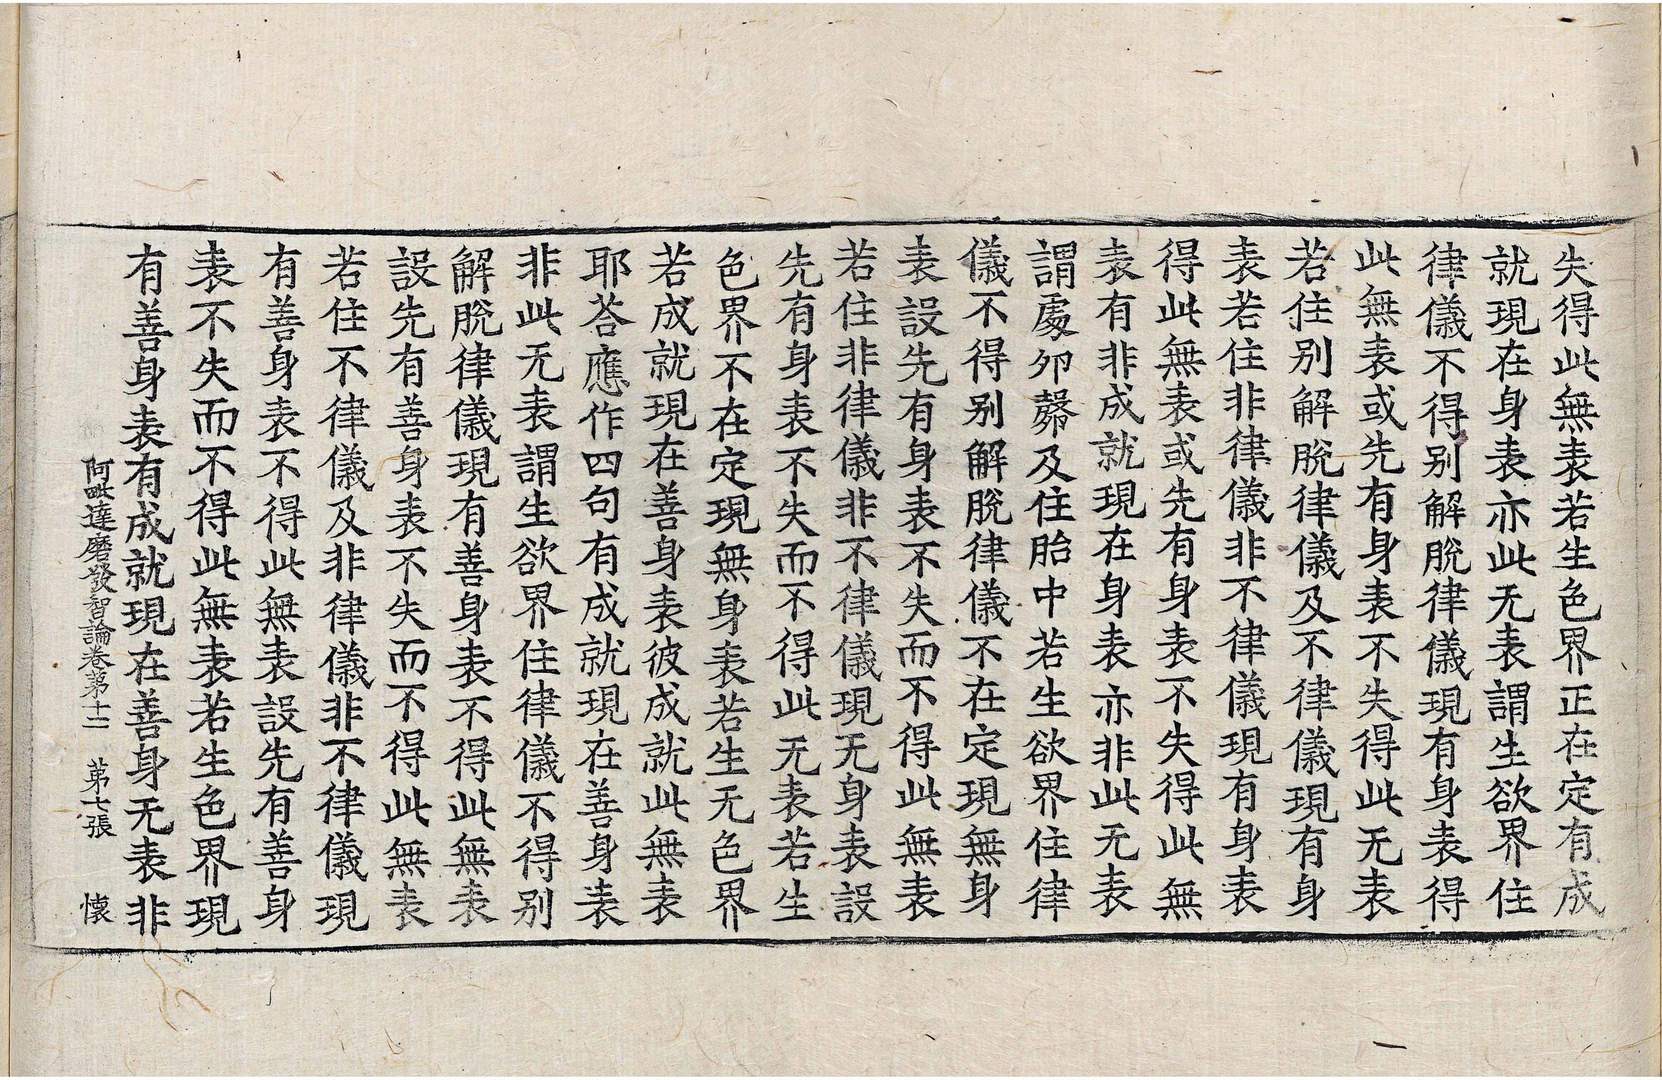 失得此無表若生色界正在定有成
就現在身表亦此无表謂生欲界住
律儀不得别解脫律儀現有身表得
此無表或先有身表不失得此无表
若住别解脫律儀及不律儀現有身
表若住非律儀非不律儀現有身表
得此無表或先有身表不失得此無
表有非成就現在身表亦非此无表
謂處夘㲉及住胎中若生欲界住律
儀不得别解脫律儀不在定現無身
表設先有身表不失而不得此無表
若住非律儀非不律儀現无身表設
先有身表不失而不得此无表若生
色界不在定現無身表若生无色界
若成就現在善身表彼成就此無表
耶荅應作四句有成就現在善身表
非此无表謂生欲界住律儀不得别
解脫律儀現有善身表不得此無表
設先有善身表不失而不得此無表
若住不律儀及非律儀非不律儀現
有善身表不得此無表設先有善身
表不失而不得此無表若生色界現
有善身表有成就現在善身无表非
阿毗達磨發智論卷第十二　第七張　懷